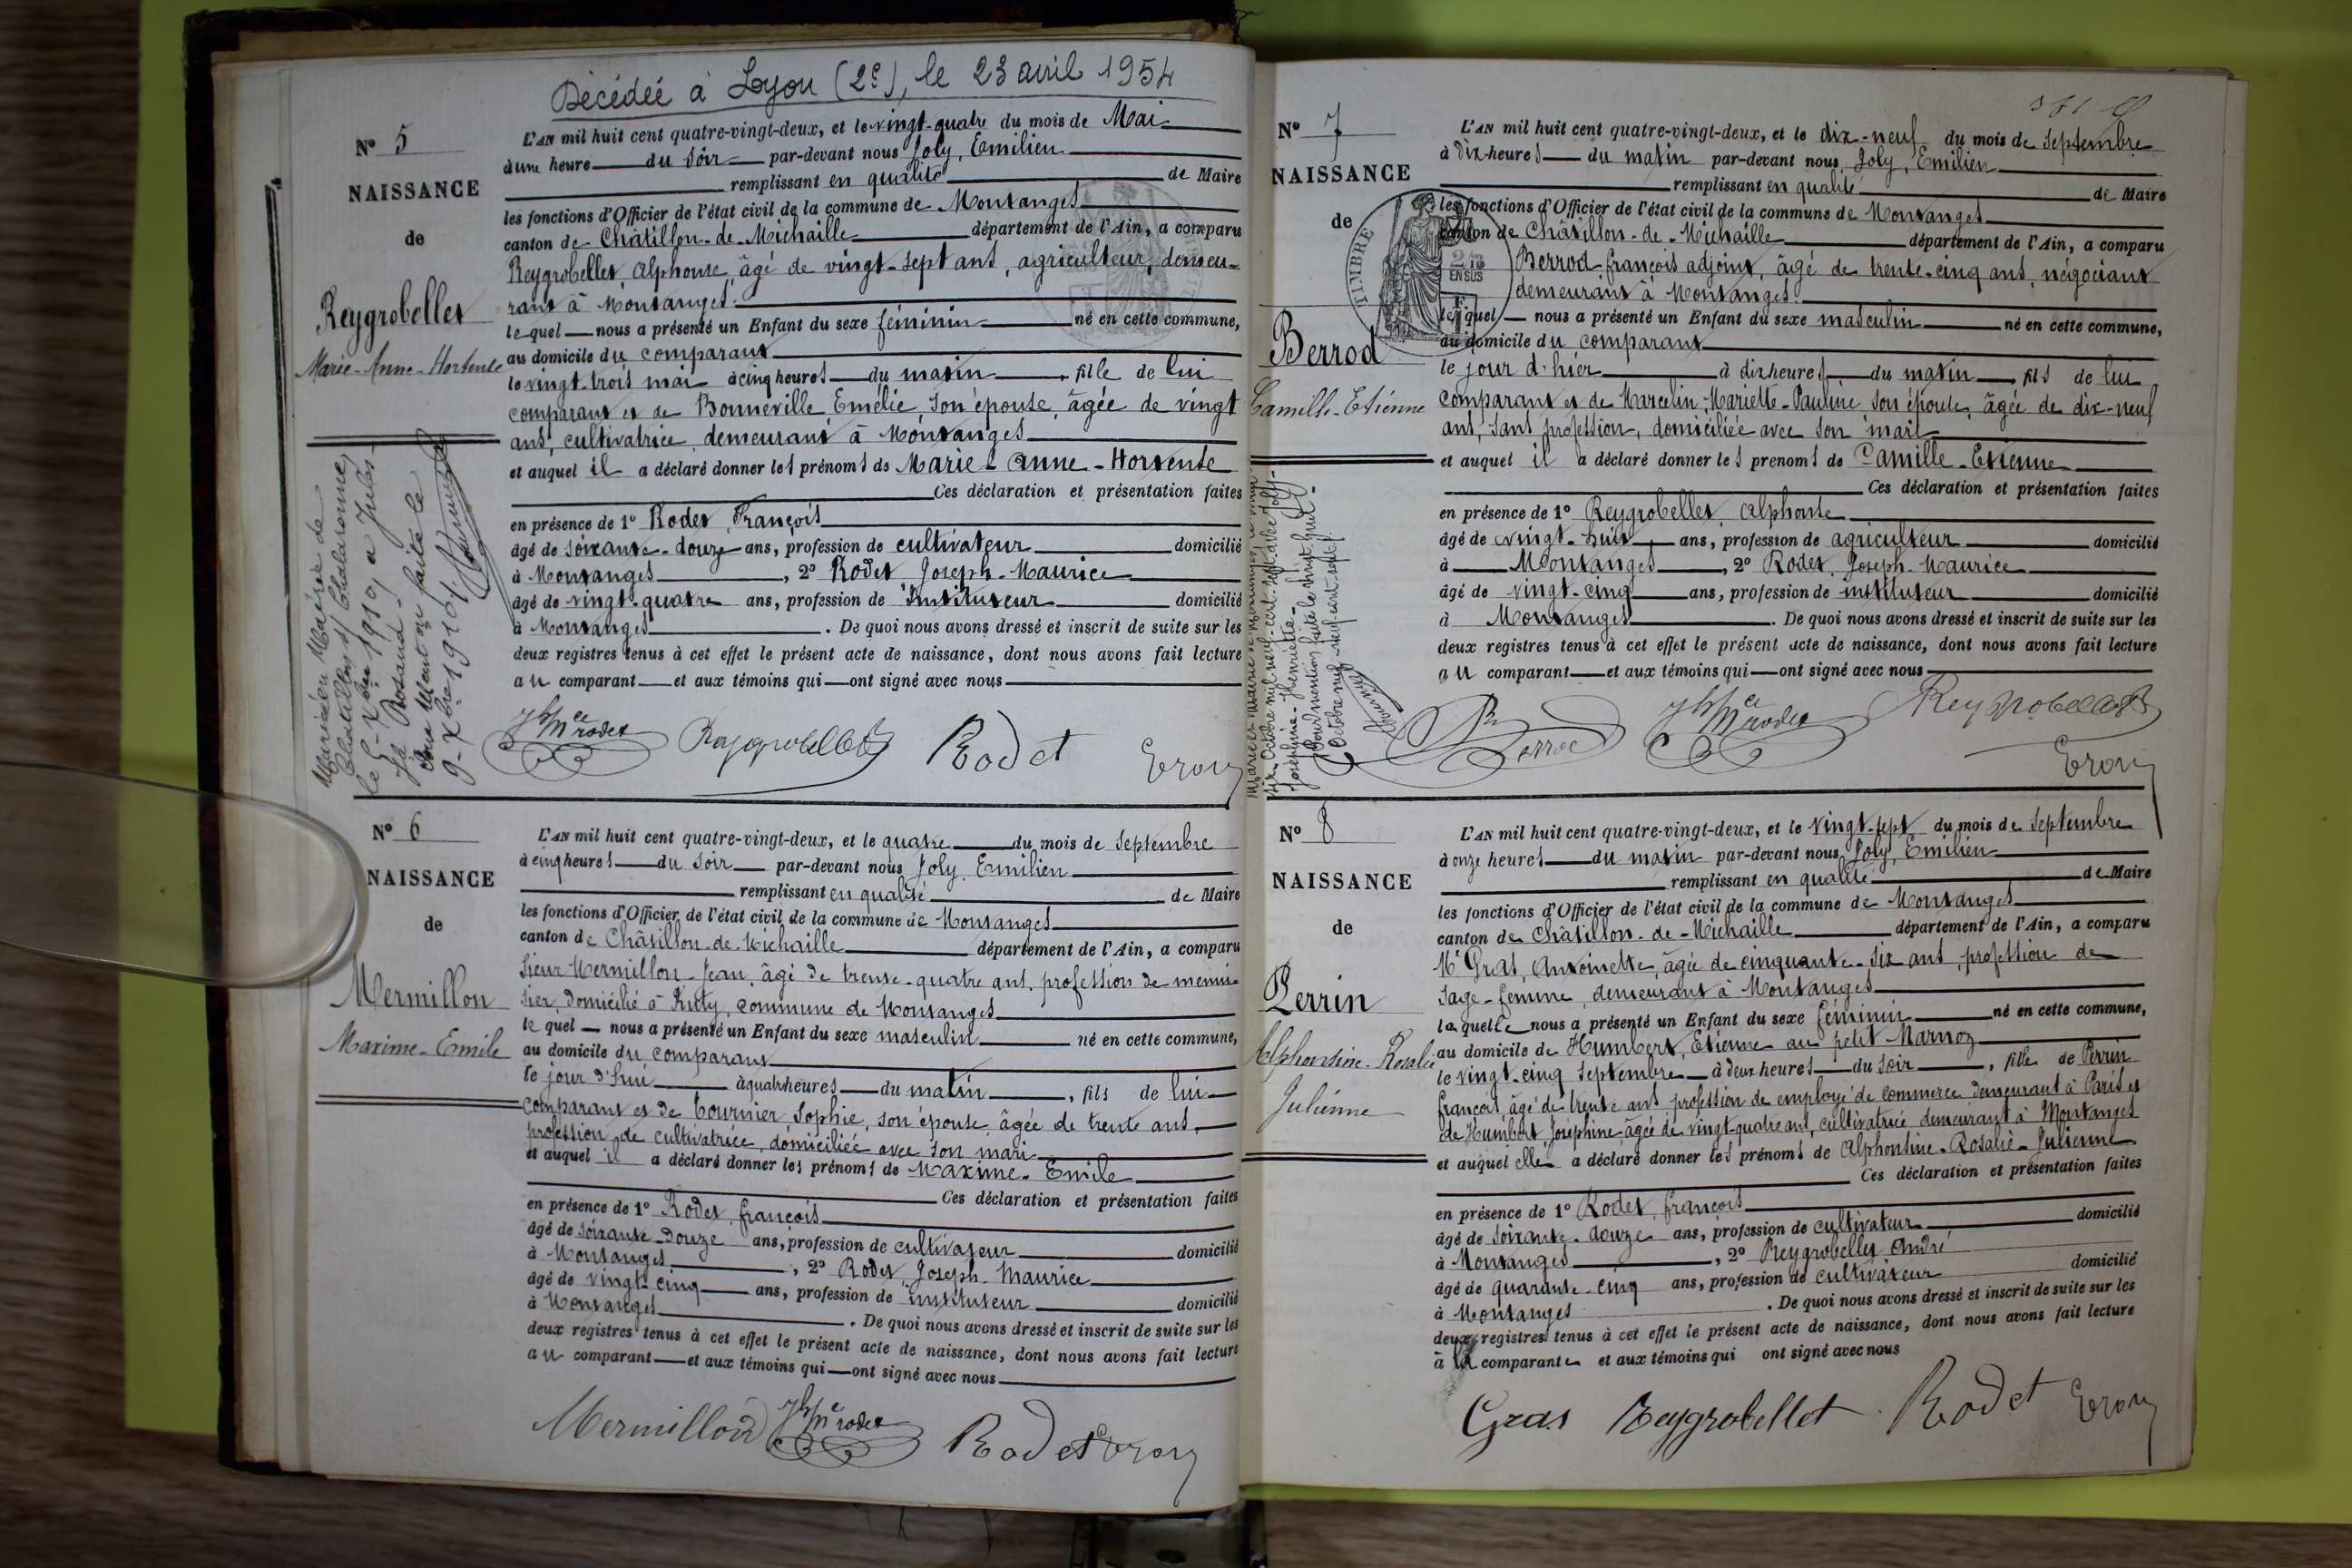 Décédée à Lyon (2e), le 23 avril 1954
N° 5
NAISSANCE
de
Reygrobellet
Marie-Anne-Hortense
L'AN mil huit cent quatre-vingt-deux, et le vingt-quatre du mois de Mai
à une heure du soir par-devant nous Joly, Emilien
remplissant en qualité de Maire
les fonctions d'Officier de l'état civil de la commune de Montanges
canton de Châtillon-de-Michaille département de l'Ain, a comparu
Reygrobellet, Alphonse, âgé de vingt-sept ans, agriculteur, demeu-
rant à Montanges.
lequel nous a présenté un Enfant du sexe féminin né en cette commune,
au domicile du comparant
le vingt-trois mai à cinq heures du matin, fille de lui
comparant et de Bonneville Emélie, son épouse, âgée de vingt
ans, cultivatrice, demeurant à Montanges
et auquel il a déclaré donner les prénoms de Marie-Anne-Hortense
Ces déclaration et présentation faites
en présence de 1° Rodet, François
âgé de soixante-douze ans, profession de cultivateur domicilié
à Montanges, 2° Rodet, Joseph-Maurice
âgé de vingt-quatre ans, profession de Instituteur domicilié
à Montanges. De quoi nous avons dressé et inscrit de suite sur les
deux registres tenus à cet effet le présent acte de naissance, dont nous avons fait lecture
au comparant et aux témoins qui ont signé avec nous
Jh Mce rodet Reygrobellet Rodet
Mariée en Mairie de
Chatillon s/ Chalaronne
le
1910, a Jules
Rosand.
Pour Mention faite le
9 - Xbre 1910.
N° 6
NAISSANCE
de
Mermillon
Maxime-Emile
L'AN mil huit cent quatre-vingt-deux, et le quatre du mois de Septembre
à cinq heures du soir par-devant nous Joly, Emilien
remplissant en qualité de Maire
les fonctions d'Officier de l'état civil de la commune de Montanges
canton de Châtillon-de-Michaille département de l'Ain, a comparu
Sieur Mermillon-Jean, âgé de trente-quatre ans, profession de menui-
sier, domicilié à Ruty, commune de Montanges
lequel nous a présenté un Enfant du sexe masculin né en cette commune,
au domicile du comparant
le jour d'hui à quatre heures du matin, fils de lui
comparant et de Tournier Sophie, son épouse, âgée de trente ans,
profession de cultivatrice, domiciliée avec son mari
et auquel il a déclaré donner les prénoms de Maxime-Emile
Ces déclaration et présentation faites
en présence de 1° Rodet, françois
âgé de soixante-douze ans, profession de cultivateur domicilié
à Montanges, 2° Rodet, Joseph-Maurice
âgé de vingt-cinq ans, profession de instituteur domicilié
à Montanges. De quoi nous avons dressé et inscrit de suite sur les
deux registres tenus à cet effet le présent acte de naissance, dont nous avons fait lecture
au comparant et aux témoins qui ont signé avec nous
Mermillon Jh Mce rodet Rodet
N° 7
NAISSANCE
de
TIMBRE
EN SUS
Berrod
Camille-Etienne
L'AN mil huit cent quatre-vingt-deux, et le dix-neuf du mois de Septembre
à dix heures du matin par-devant nous Joly, Emilien
remplissant en qualité de Maire
les fonctions d'Officier de l'état civil de la commune de Montanges
canton de Châtillon-de-Michaille département de l'Ain, a comparu
Berrod françois adjoint, âgé de trente-cinq ans, négociant
demeurant à Montanges.
lequel nous a présenté un Enfant du sexe masculin né en cette commune,
au domicile du comparant
le jour d'hier à dix heures du matin, fils de lui
comparant et de Marcelin, Mariette-Pauline son épouse, âgée de dix-neuf
ans, sans profession, domiciliée avec son mari
et auquel il a déclaré donner les prénoms de Camille-Etienne
Ces déclaration et présentation faites
en présence de 1° Reygrobellet, Alphonse
âgé de vingt-huit ans, profession de agriculteur domicilié
à Montanges, 2° Rodet, Joseph-Maurice
âgé de vingt-cinq ans, profession de instituteur domicilié
à Montanges. De quoi nous avons dressé et inscrit de suite sur les
deux registres tenus à cet effet le présent acte de naissance, dont nous avons fait lecture
au comparant et aux témoins qui ont signé avec nous
Berrod Jh Mce rodet Reygrobellet
Octobre mil neuf-cent-sept avec Joly
Joséphine-Henriette-
Pour mention faite le vingt-huit
Octobre mil-neuf-cent-sept.
N° 8
NAISSANCE
de
Perrin
Alphonsine-Rosalie
Julienne
L'AN mil huit cent quatre-vingt-deux, et le Vingt-sept du mois de Septembre
à onze heures du matin par-devant nous Joly, Emilien
remplissant en qualité de Maire
les fonctions d'Officier de l'état civil de la commune de Montanges
canton de Châtillon-de-Michaille département de l'Ain, a comparu
Me Gras, Antoinette, âgée de cinquante-six ans, profession de
sage-femme, demeurant à Montanges
laquelle nous a présenté un Enfant du sexe féminin né en cette commune,
au domicile de Humbert, Etienne au petit Marnoz
le vingt-cinq Septembre à deux heures du soir, fille de Perrin
françois, âgé de trente ans, profession de employé de commerce, demeurant à Paris et
de Humbert Joséphine, âgée de vingt-quatre ans, cultivatrice demeurant à Montanges
et auquel elle a déclaré donner les prénoms de Alphonsine-Rosalie-Julienne
Ces déclaration et présentation faites
en présence de 1° Rodet, françois
âgé de soixante-douze ans, profession de cultivateur domicilié
à Montanges, 2° Reygrobellet André
âgé de quarante-cinq ans, profession de cultivateur domicilié
à Montanges. De quoi nous avons dressé et inscrit de suite sur les
deux registres tenus à cet effet le présent acte de naissance, dont nous avons fait lecture
à la comparante et aux témoins qui ont signé avec nous
Gras Reygrobellet Rodet